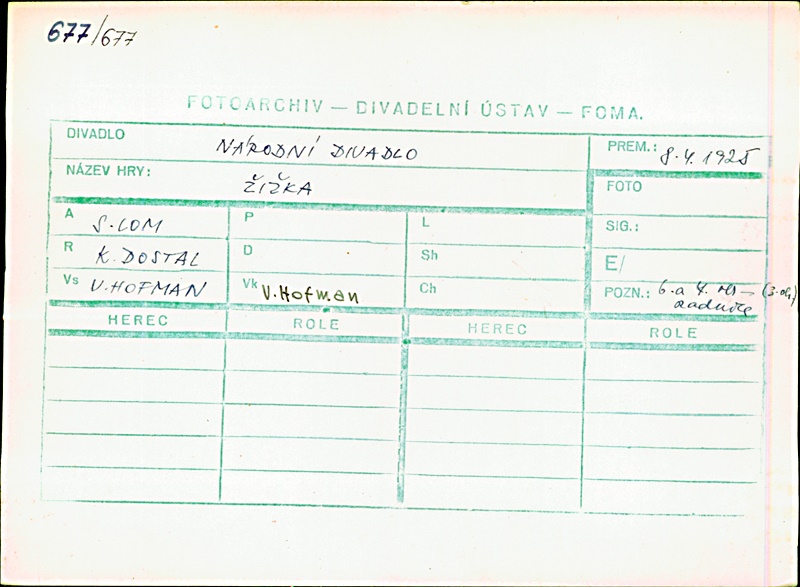 677/677
FOTOARCHIV — DIVADELNÍ ÚSTAV — FOMA.
DIVADLO NÁRODNÍ DIVADLO PREM.: 8.4.1925
NÁZEV HRY: ŽIŽKA FOTO
A S. LOM P L SIG.:
R K. DOSTAL D Sh E/
Vs V. HOFMAN Vk V. Hofman Ch POZN.: 6. a 7.
HEREC ROLE HEREC ROLE